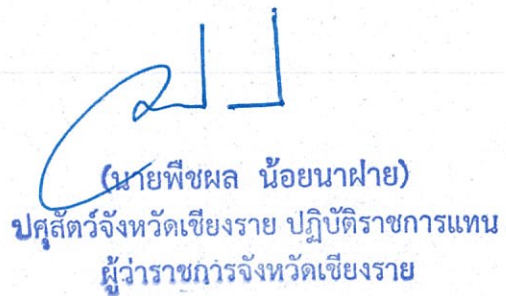 (นายพืชผล น้อยนาฝาย)
ปศุสัตว์จังหวัดเชียงราย ปฏิบัติราชการแทน
ผู้ว่าราชการจังหวัดเชียงราย